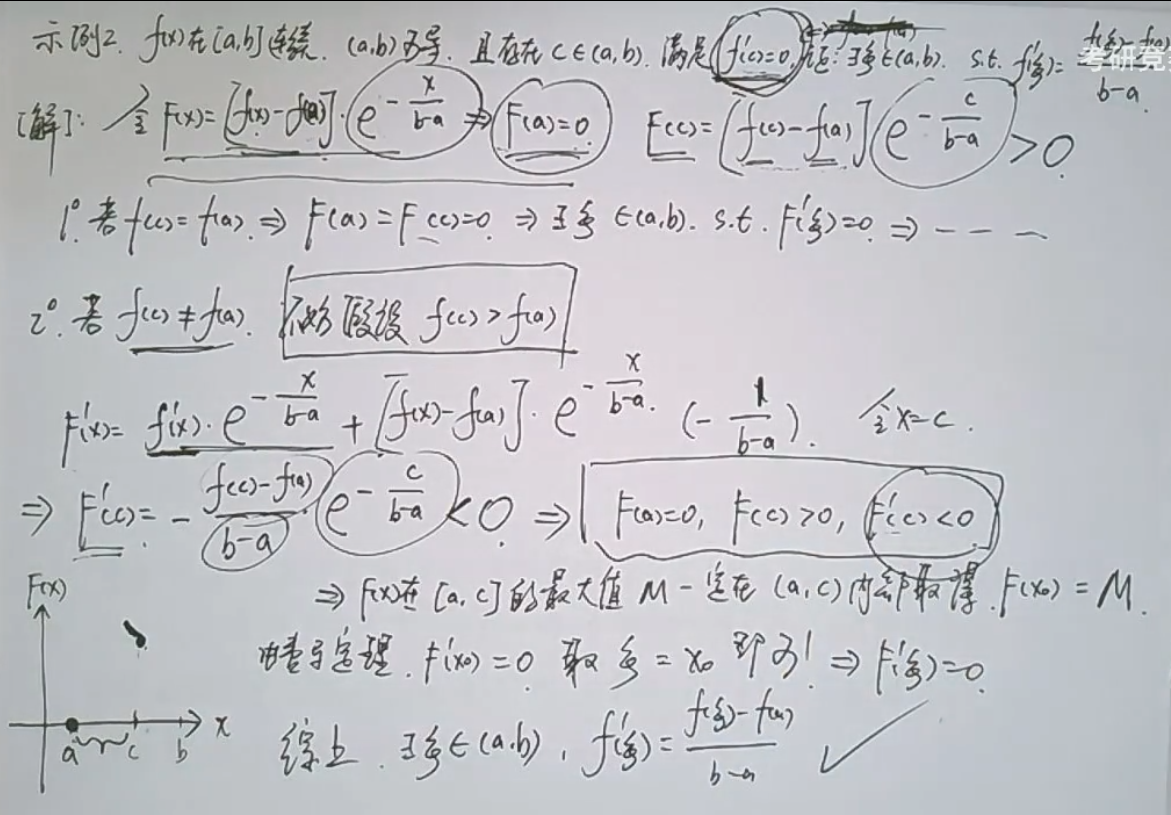 示例2. f(x)在[a,b]连续. (a,b)可导. 且存在 c∈(a,b). 满足 f'(c)=0. 证: ∃ξ∈(a,b). s.t. f'(ξ)= (f(ξ)-f(a))/(b-a).
考研竞
[解]: 令 F(x)=[f(x)-f(a)]·e^(-x/(b-a)) ⇒ F(a)=0 F(c)=[f(c)-f(a)] e^(-c/(b-a)) >0.
1°. 若 f(c)=f(a). ⇒ F(a)=F(c)=0. ⇒ ∃ξ∈(a,b). s.t. F'(ξ)=0. ⇒ - - -
2°. 若 f(c)≠f(a). 不妨假设 f(c)>f(a)
F'(x)= f'(x)·e^(-x/(b-a)) + [f(x)-f(a)]·e^(-x/(b-a)). (-1/(b-a)). 令x=c.
⇒ F'(c)= - (f(c)-f(a))/(b-a) e^(-c/(b-a)) <0. ⇒ F(a)=0, F(c)>0, F'(c)<0
F(x)
⇒ F(x)在[a,c]的最大值 M 一定在(a,c)内部取得. F(x₀)=M.
由费马定理. F'(x₀)=0. 取ξ=x₀ 即可! ⇒ F'(ξ)=0.
a c b x
综上. ∃ξ∈(a,b), f'(ξ)= (f(ξ)-f(a))/(b-a) ✓